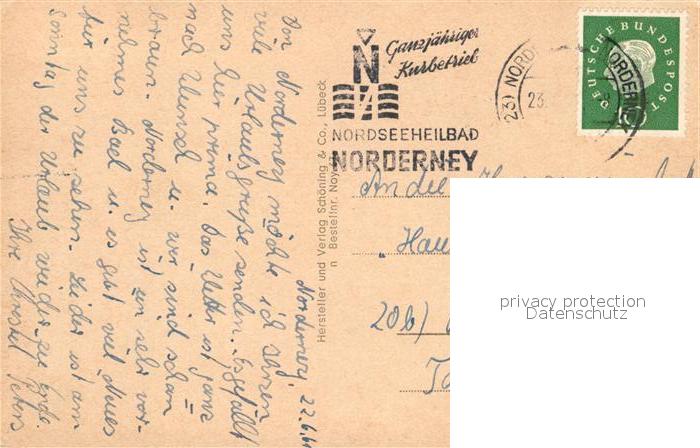 Norderney, 22.6.
Von Norderney möchte ich Ihnen
viele Urlaubsgrüße senden. Es gefällt
uns hier prima. Das Wetter ist ganz
nach Wunsch u. wir sind schon
braun. Norderney ist ein sehr vor-
nehmes Bad u. es gibt viel Neues
für uns zu sehen. Leider ist am
Sonntag der Urlaub wieder zu Ende.
Ihre Christel Peters
Hersteller und Verlag Schöning & Co., Lübeck
Bestellnr. Noy
Ganzjähriger
Kurbetrieb
N
NORDSEEHEILBAD
NORDERNEY
(23) NORDERNEY
23.
DEUTSCHE BUNDESPOST
10
An die
"Hau
20b)
privacy protection
Datenschutz